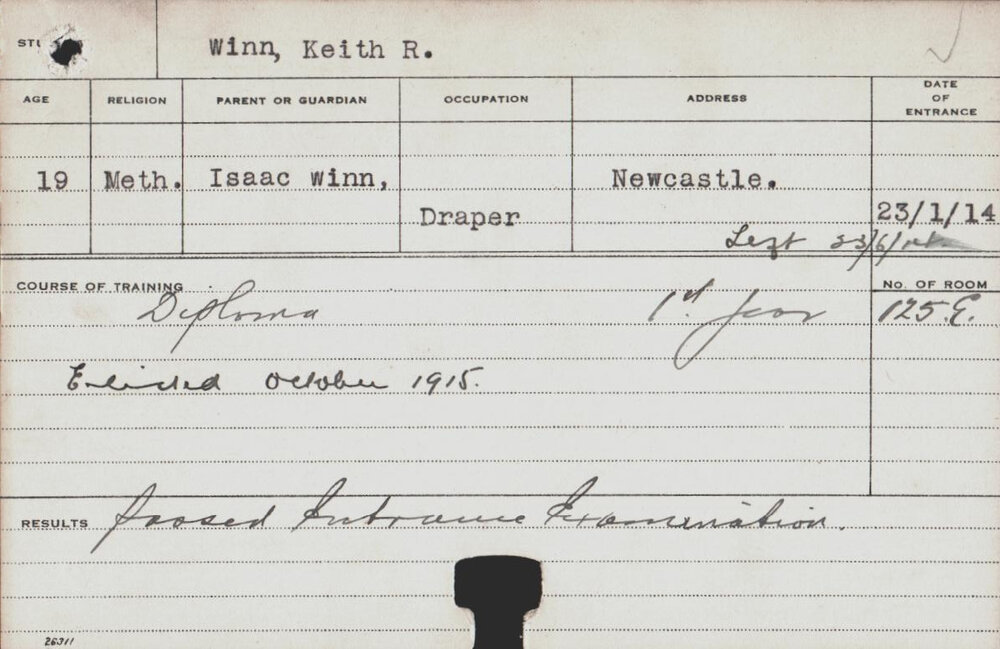 Winn, Keith R.
AGE RELIGION PARENT OR GUARDIAN OCCUPATION ADDRESS DATE OF ENTRANCE
19 Meth. Isaac Winn, Newcastle.
Draper 23/1/14
Left 23/6/14
COURSE OF TRAINING No. OF ROOM
Diploma 1st year 125.E.
Enlisted October 1915.
RESULTS Passed Entrance Examination.
26311